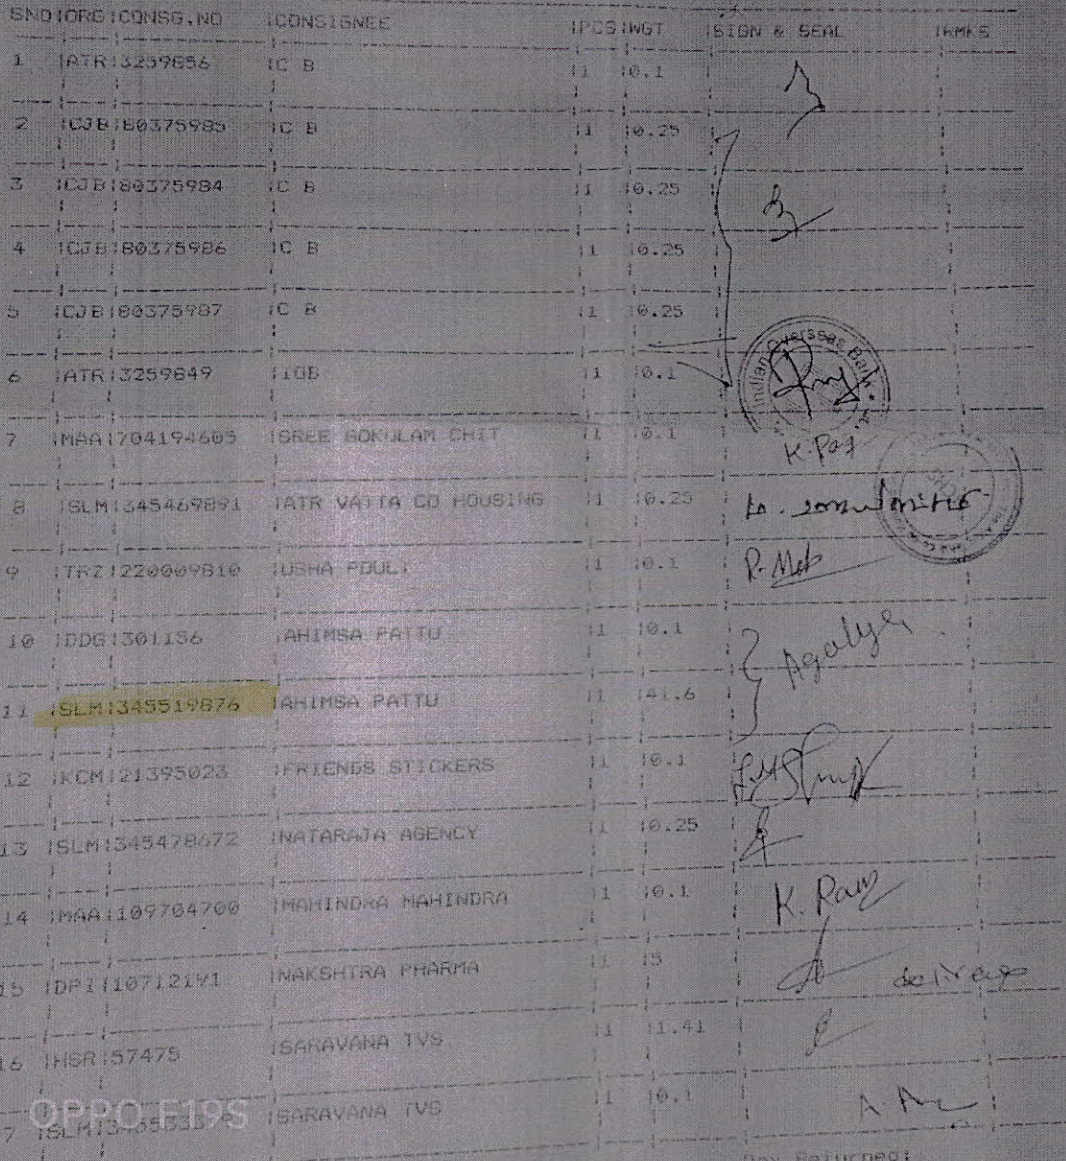 SNO|ORG|CONSG.NO |CONSIGNEE |PCS|WGT |SIGN & SEAL |RMKS
1 |ATR|3259856 |C B |1 |0.1
2 |CJB|80375985 |C B |1 |0.25
3 |CJB|80375984 |C B |1 |0.25
4 |CJB|80375986 |C B |1 |0.25
5 |CJB|80375987 |C B |1 |0.25
6 |ATR|3259849 |IOB |1 |0.1
Indian Overseas Bank
7 |MAA|704194605 |SREE GOKULAM CHIT |1 |0.1
8 |SLM|345469891 |ATR VATTA CO HOUSING |1 |0.25
9 |TRZ|220009810 |USHA POULT |1 |0.1
10 |DDG|301156 |AHIMSA PATTU |1 |0.1 Agalya
11 |SLM|345519876 |AHIMSA PATTU |1 |41.6
12 |KCM|21395023 |FRIENDS STICKERS |1 |0.1
13 |SLM|345478672 |NATARAJA AGENCY |1 |0.25
14 |MAA|109704700 |MAHINDRA MAHINDRA |1 |0.1 K. Ram
15 |DPI|10712191 |NAKSHTRA PHARMA |1 |5
16 |HSR|57475 |SARAVANA TVS |1 |1.41
7 |SLM| |SARAVANA TVS |1 |0.1
OPPO F19S
Returned: